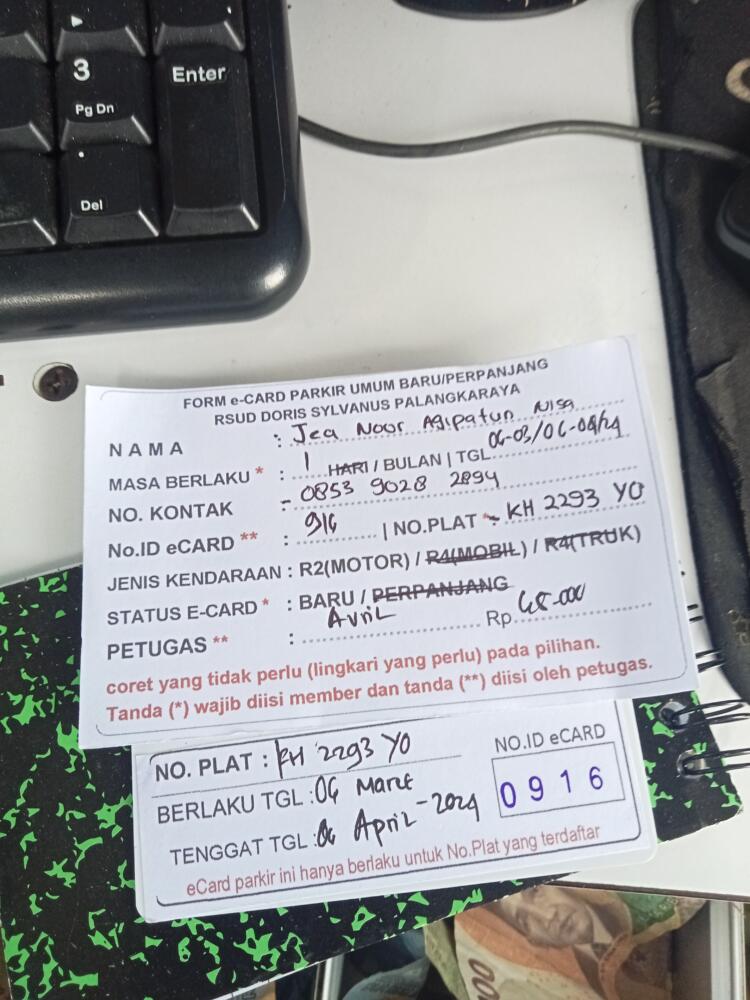 3
Pg Dn
Enter
.
Del
FORM e-CARD PARKIR UMUM BARU/PERPANJANG
RSUD DORIS SYLVANUS PALANGKARAYA
NAMA : Jea Noor Agipatun Nisa
MASA BERLAKU * : 1 HARI / BULAN | TGL 06-03/06-04/24
NO. KONTAK - 0853 9028 2894
No.ID eCARD ** : 916 | NO.PLAT * - KH 2293 YO
JENIS KENDARAAN : R2(MOTOR) / R4(MOBIL) / R4(TRUK)
STATUS E-CARD * : BARU / PERPANJANG
PETUGAS ** : Avril Rp. 45.000
coret yang tidak perlu (lingkari yang perlu) pada pilihan.
Tanda (*) wajib diisi member dan tanda (**) diisi oleh petugas.
NO. PLAT : KH 2293 YO
NO.ID eCARD
0916
BERLAKU TGL : 06 Maret
TENGGAT TGL : 06 April - 2024
eCard parkir ini hanya berlaku untuk No.Plat yang terdaftar
00